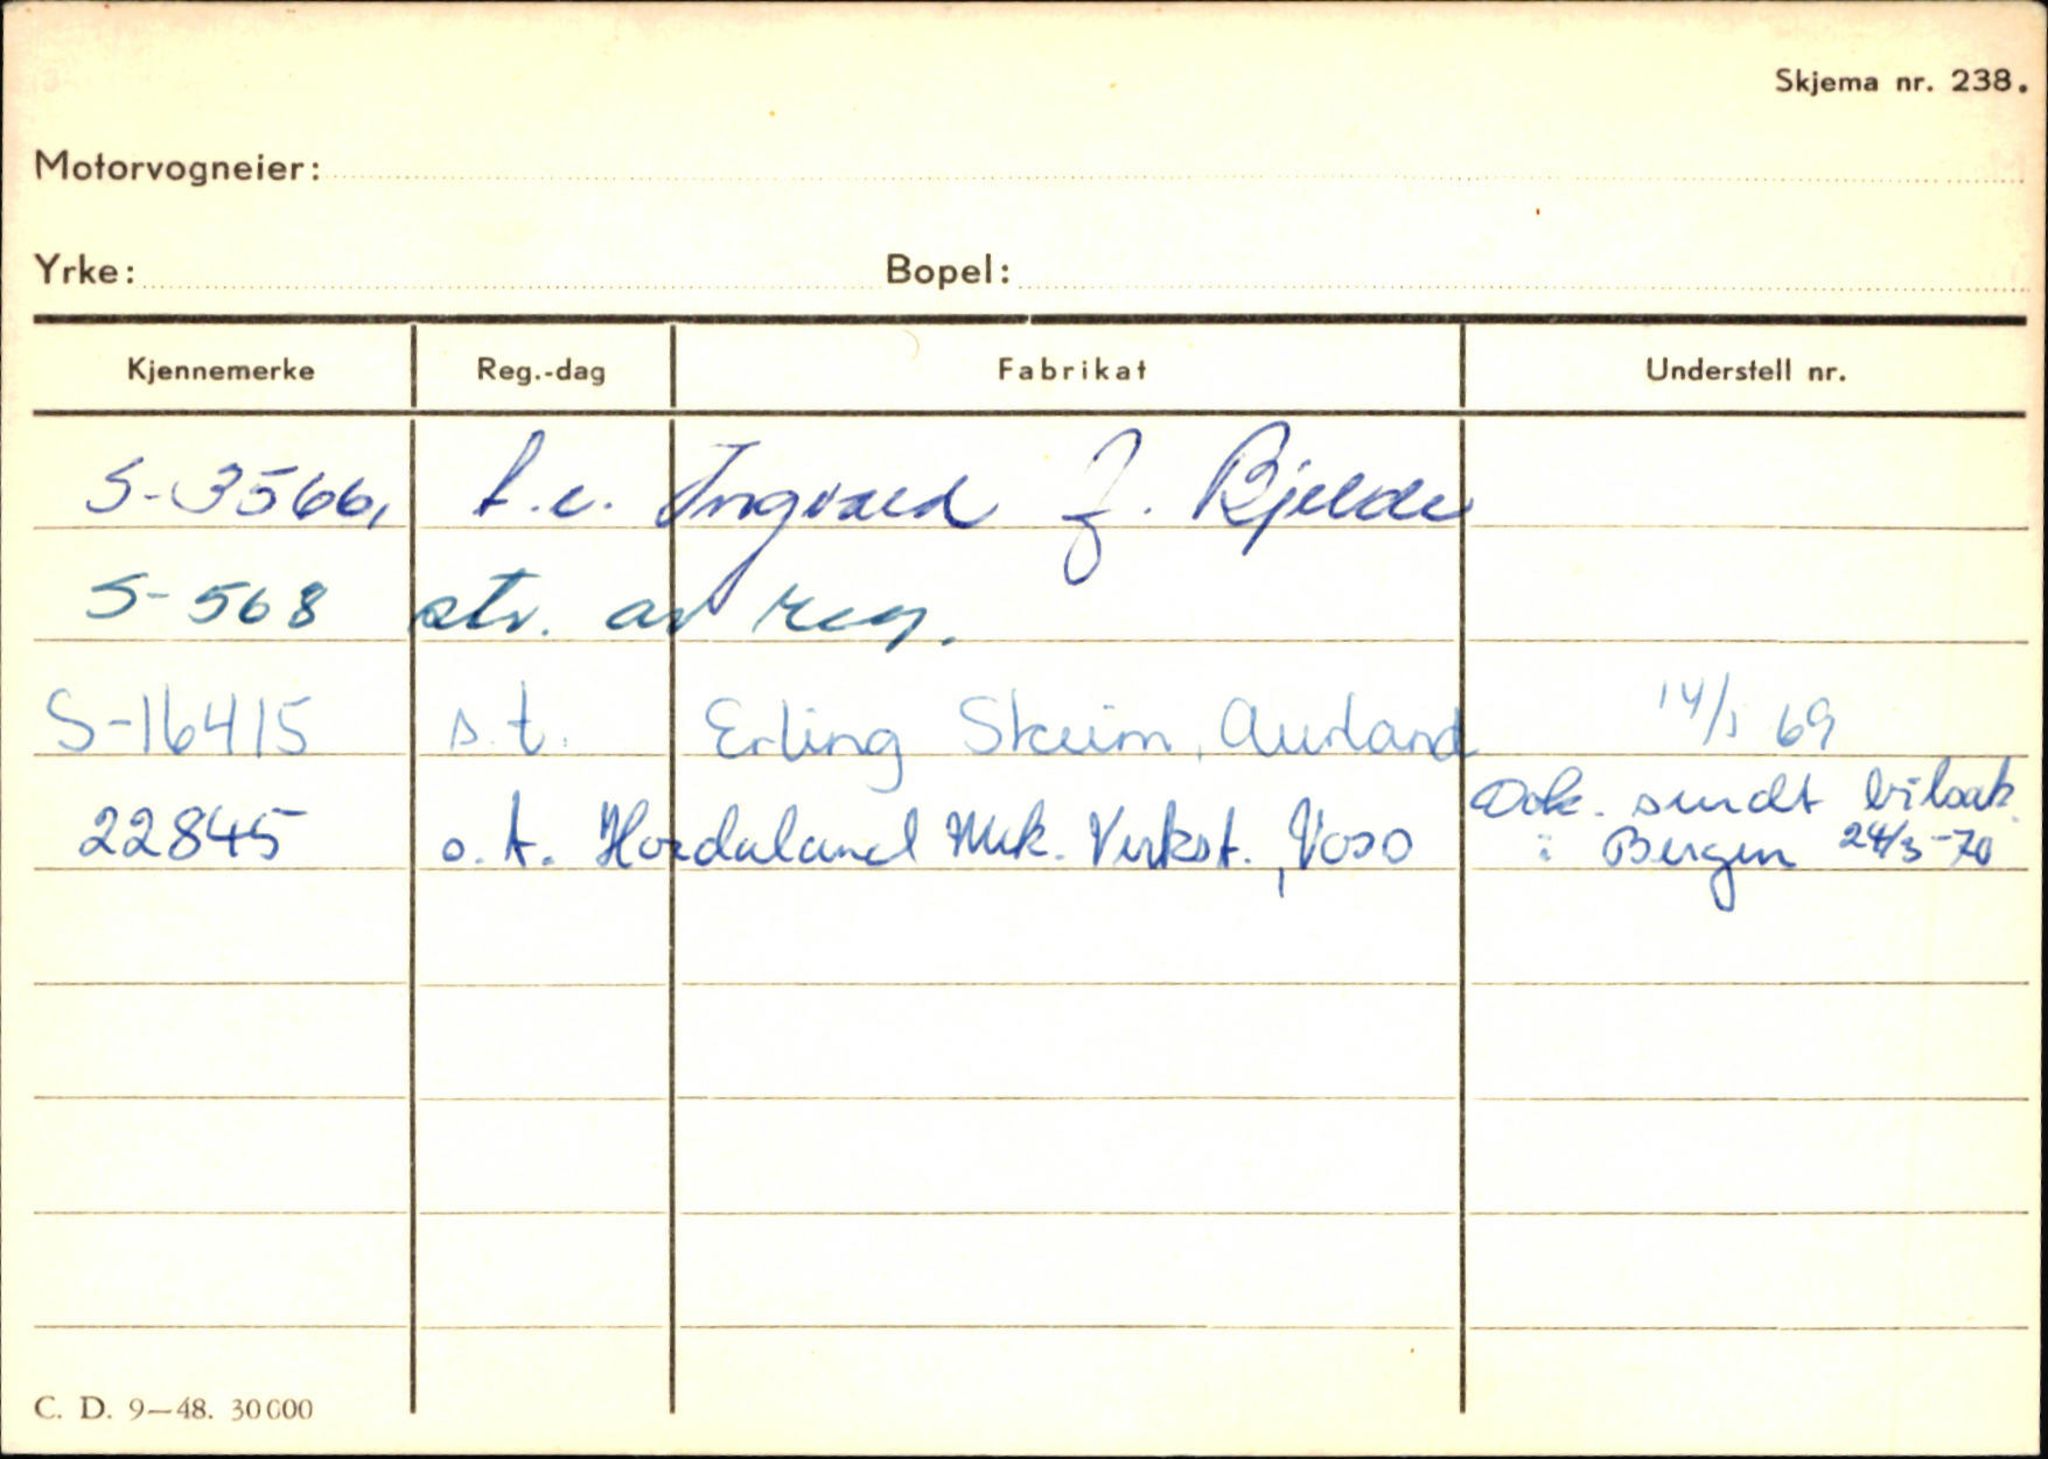 Skjema nr. 238.
Motorvogneier:
Yrke: Bopel:
Kjennemerke Reg.-dag Fabrikat Understell nr.
S-3566, t.e. Ingvald J. Bjelde
S-568 str. av reg.
S-16415 s.t. Erling Skeim, Aurland 14/1 69
22845 s.t. Hordaland Mek. Verkst., Voss Dok. sendt bilsak.
i Bergen 24/3-70
C. D. 9—48. 30000